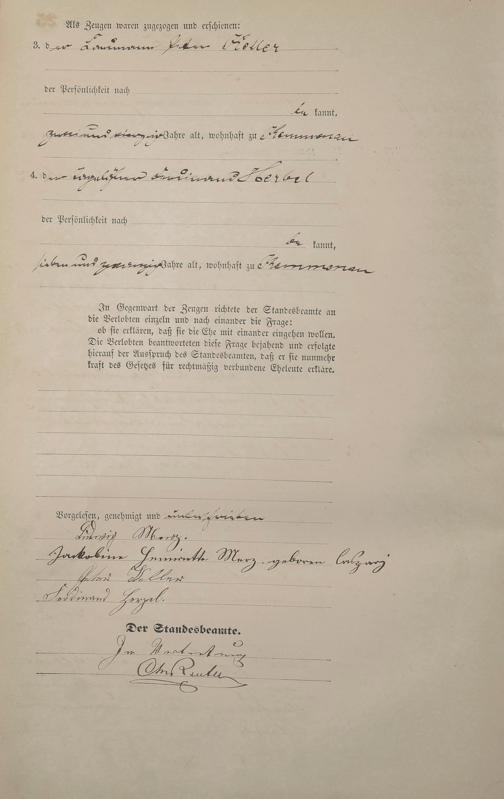 Als Zeugen waren zugezogen und erschienen:
3. der Peter Keller
der Persönlichkeit nach
be kannt,
zweiundvierzig Jahre alt, wohnhaft zu Kemmenau
4. der Ferdinand Herbel
der Persönlichkeit nach
be kannt,
siebenundzwanzig Jahre alt, wohnhaft zu Kemmenau
In Gegenwart der Zeugen richtete der Standesbeamte an
die Verlobten einzeln und nach einander die Frage:
ob sie erklären, daß sie die Ehe mit einander eingehen wollen.
Die Verlobten beantworteten diese Frage bejahend und erfolgte
hierauf der Ausspruch des Standesbeamten, daß er sie nunmehr
kraft des Gesetzes für rechtmäßig verbundene Eheleute erkläre.
Vorgelesen, genehmigt und unterschrieben
Ludwig Merz.
Jackobine Henriette Merz geboren Caspary
Peter Keller
Ferdinand
Der Standesbeamte.
In Vertretung